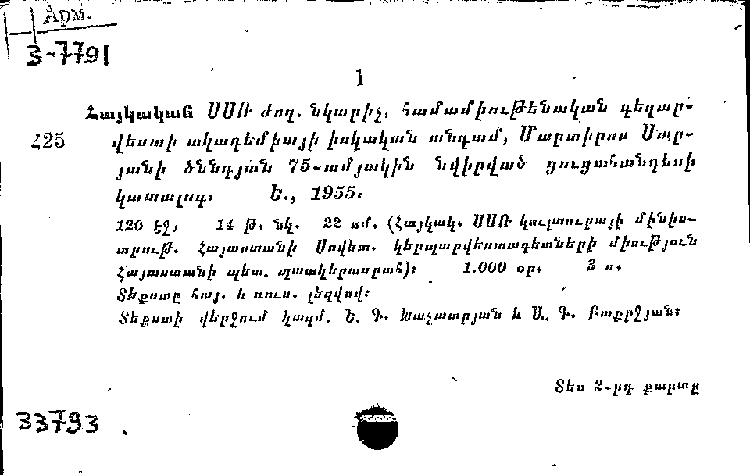 Арм.
3-7791
1
Հայկական ՍՍՌ ժող. նկարիչ, համամիութենական գեղար-
Հ25 վեստի ակադեմիայի իսկական անդամ, Մարտիրոս Սար-
յանի ծննդյան 75-ամյակին նվիրված ցուցահանդեսի
կատալոգ. Ե., 1955։
120 էջ, 14 թ. նկ. 22 սմ. (Հայկակ. ՍՍՌ կուլտուրայի մինիս-
տրութ. Հայաստանի Սովետ. կերպարվեստագետների միություն
Հայաստանի պետ. պատկերասրահ)։ 1.000 օր. 3 ռ.
Տեքստը հայ. և ռուս. լեզվով։
Տեքստի վերջում կազմ. Ե. Գ. Խաչատրյան և Ա. Գ.
Տես 2-րդ քարտը
33793